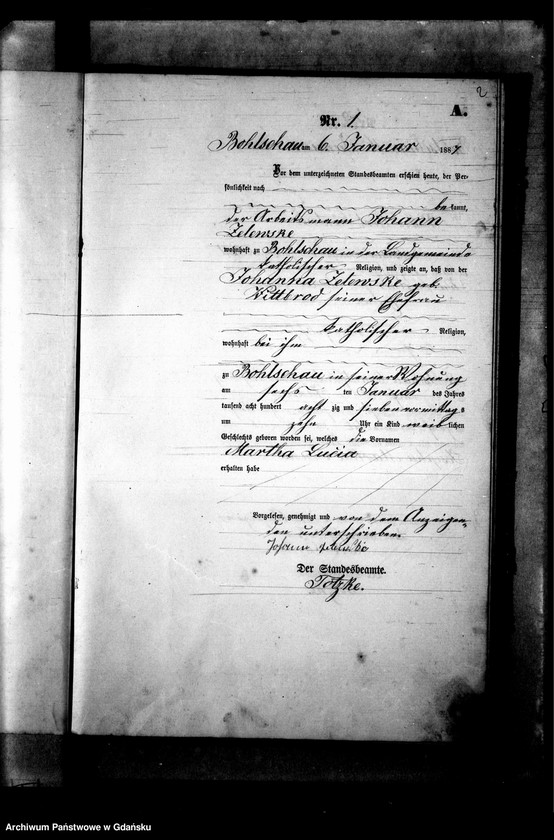 2
A.
Nr. 1.
Bohlschau am 6. Januar 1887.
Vor dem unterzeichneten Standesbeamten erschien heute, der Per-
sönlichkeit nach
bekannt,
der Arbeitsmann Johann
Zelewske
wohnhaft zu Bohlschau in der Landgemeinde
katholischer Religion, und zeigte an, daß von der
Johanna Zelewske geb.
Wittbrod seiner Ehefrau
katholischer Religion,
wohnhaft bei ihm
zu Bohlschau in seiner Wohnung
am sechsten Januar des Jahres
tausend acht hundert achtzig und sieben vormittags
um zehn Uhr ein Kind weiblichen
Geschlechts geboren worden sei, welches die Vornamen
Martha Lucia
erhalten habe
Vorgelesen, genehmigt und von dem Anzeigen-
den unterschrieben.
Johann
Der Standesbeamte.
Totzke.
Archiwum Państwowe w Gdańsku